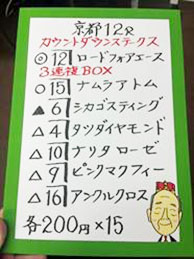 京都12R
カウントダウンステークス
◎12 ロードフォアエース
3連複BOX
○15 ナムラアトム
▲6 シカゴスティング
△4 タツダイヤモンド
△10 ナリタローゼ
△9 ピンクマクフィー
△16 アンクルクロス
各200円×15